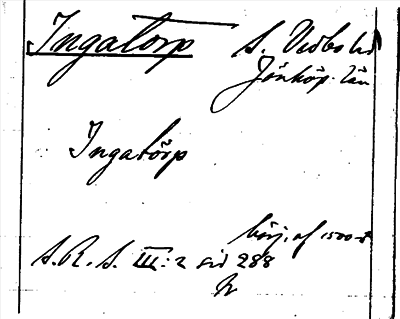 Ingatorp S. Vedbo hd
Jönköp. län
Ingatörp
börj. af 1500-t
S.R.S. III:2 sid 288